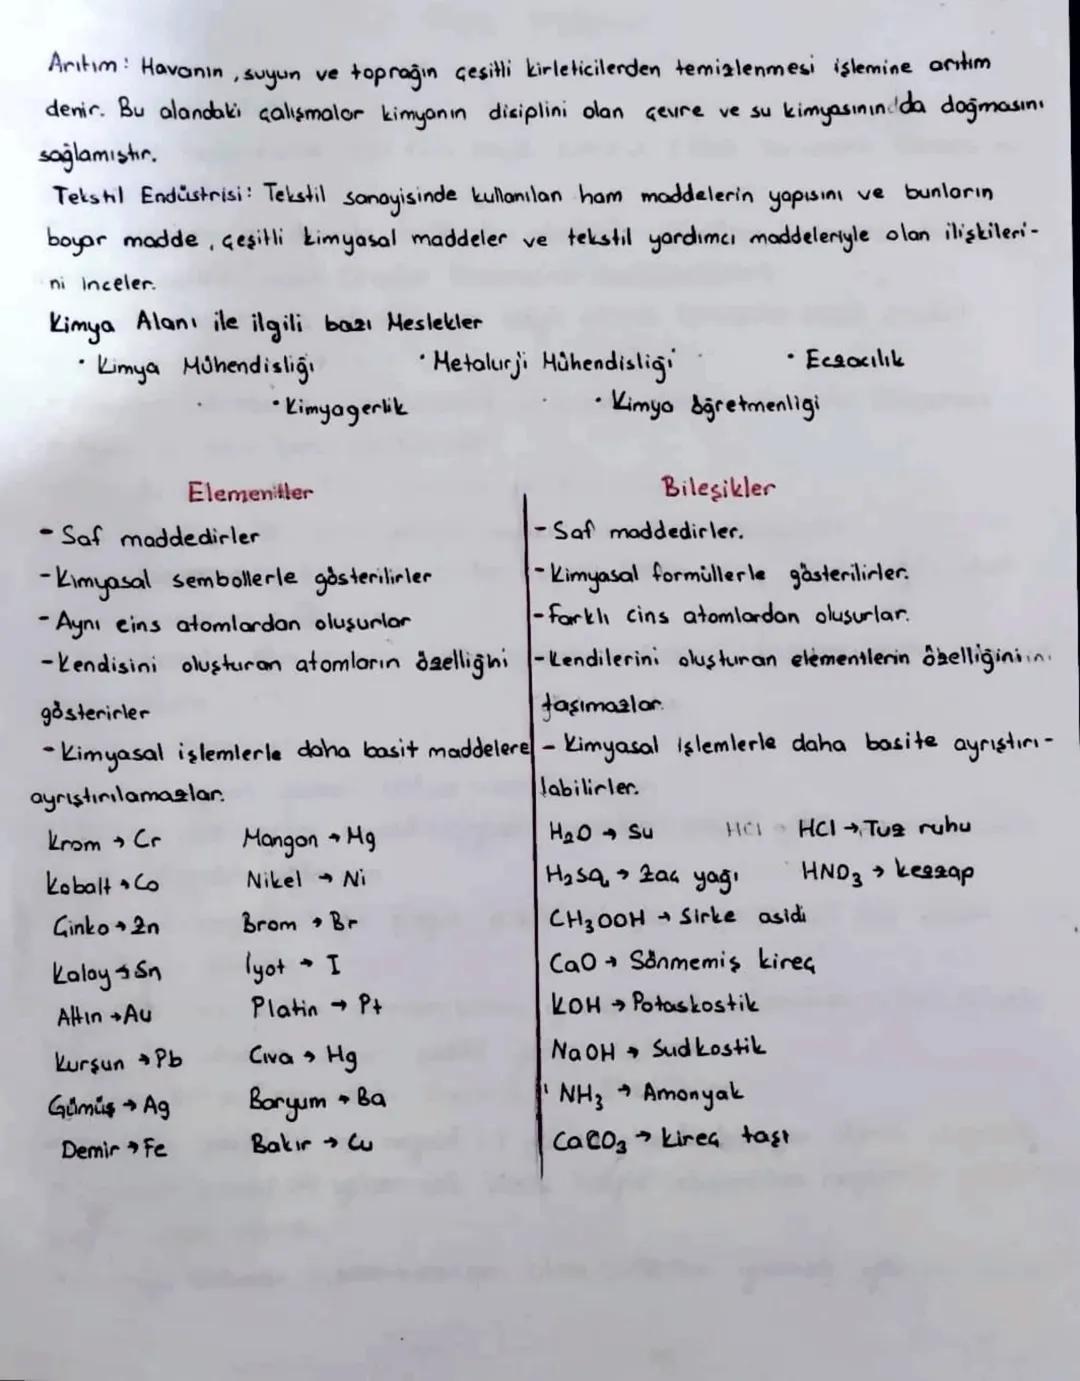 Arıtım: Havanın, suyun ve toprağın çeşitli kirleticilerden temizlenmesi işlemine arıtım
denir. Bu alandaki çalışmalar kimyanın disiplini olan çevre ve su kimyasının da doğmasını
sağlamıştır.
Tekstil Endüstrisi: Tekstil sanayisinde kullanılan ham maddelerin yapısını ve bunların
boyar madde, çeşitli kimyasal maddeler ve tekstil yardımcı maddeleriyle olan ilişkileri-
ni inceler.
Kimya Alanı ile ilgili bazı Meslekler
• Kimya Mühendisliği • Metalurji Mühendisliği • Eczacılık
• Kimyagerlik • Kimya öğretmenligi
Elementler
- Saf maddedirler
- Kimyasal sembollerle gösterilirler
- Aynı cins atomlardan oluşurlar
- Kendisini oluşturan atomların özelliğni
gösterirler
- Kimyasal işlemlerle daha basit maddelere
ayrıştırılamazlar.
Krom → Cr Mangan → Mg
Kobalt → Co Nikel → Ni
Çinko → Zn Brom → Br
Kalay → Sn İyot → I
Altın → Au Platin → Pt
Kurşun → Pb Cıva → Hg
Gümüş → Ag Baryum → Ba
Demir → Fe Bakır → Cu
Bileşikler
- Saf maddedirler.
- Kimyasal formüllerle gösterilirler.
- Farklı cins atomlardan oluşurlar.
- Kendilerini oluşturan elementlerin özelliğini
taşımazlar.
- Kimyasal işlemlerle daha basite ayrıştırı-
labilirler.
H₂O → Su HCl HCl → Tuz ruhu
H₂SO₄ → Zaç yağı HNO₃ → kezzap
CH₃OOH → Sirke asidi
CaO → Sönmemiş kireç
KOH → Potaskostik
NaOH → Sudkostik
NH₃ → Amonyak
CaCO₃ → kireç taşı